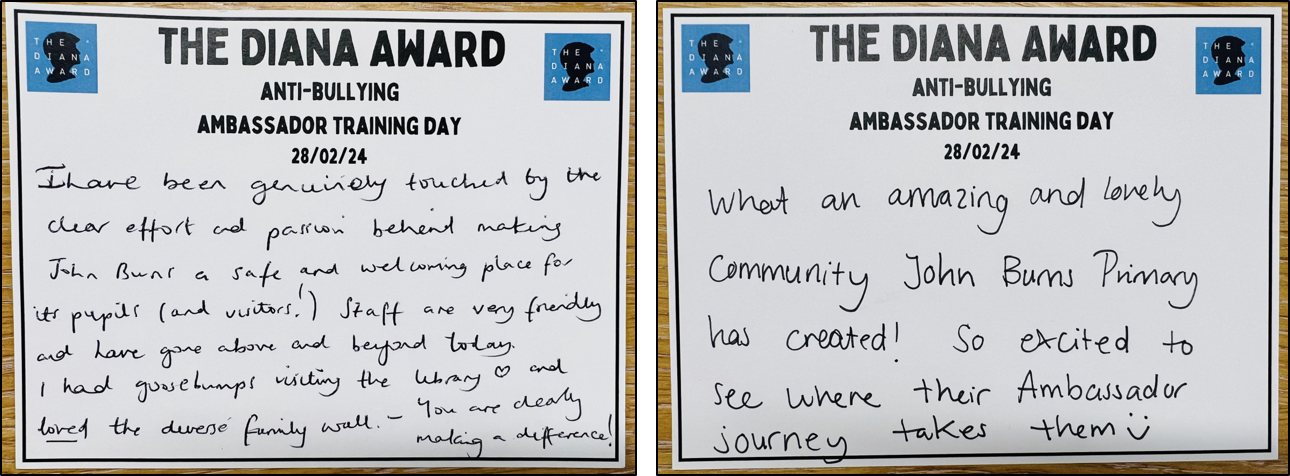 THE DIANA AWARD
THE DIANA AWARD
THE DIANA AWARD
ANTI-BULLYING
AMBASSADOR TRAINING DAY
28/02/24
I have been genuinely touched by the
clear effort and passion behind making
John Burns a safe and welcoming place for
its pupils (and visitors!) Staff are very friendly
and have gone above and beyond today.
I had goosebumps visiting the library ♡ and
loved the diverse family wall. – You are clearly
making a difference!
THE DIANA AWARD
THE DIANA AWARD
THE DIANA AWARD
ANTI-BULLYING
AMBASSADOR TRAINING DAY
28/02/24
What an amazing and lovely
Community John Burns Primary
has created! So excited to
see where their Ambassador
journey takes them :)